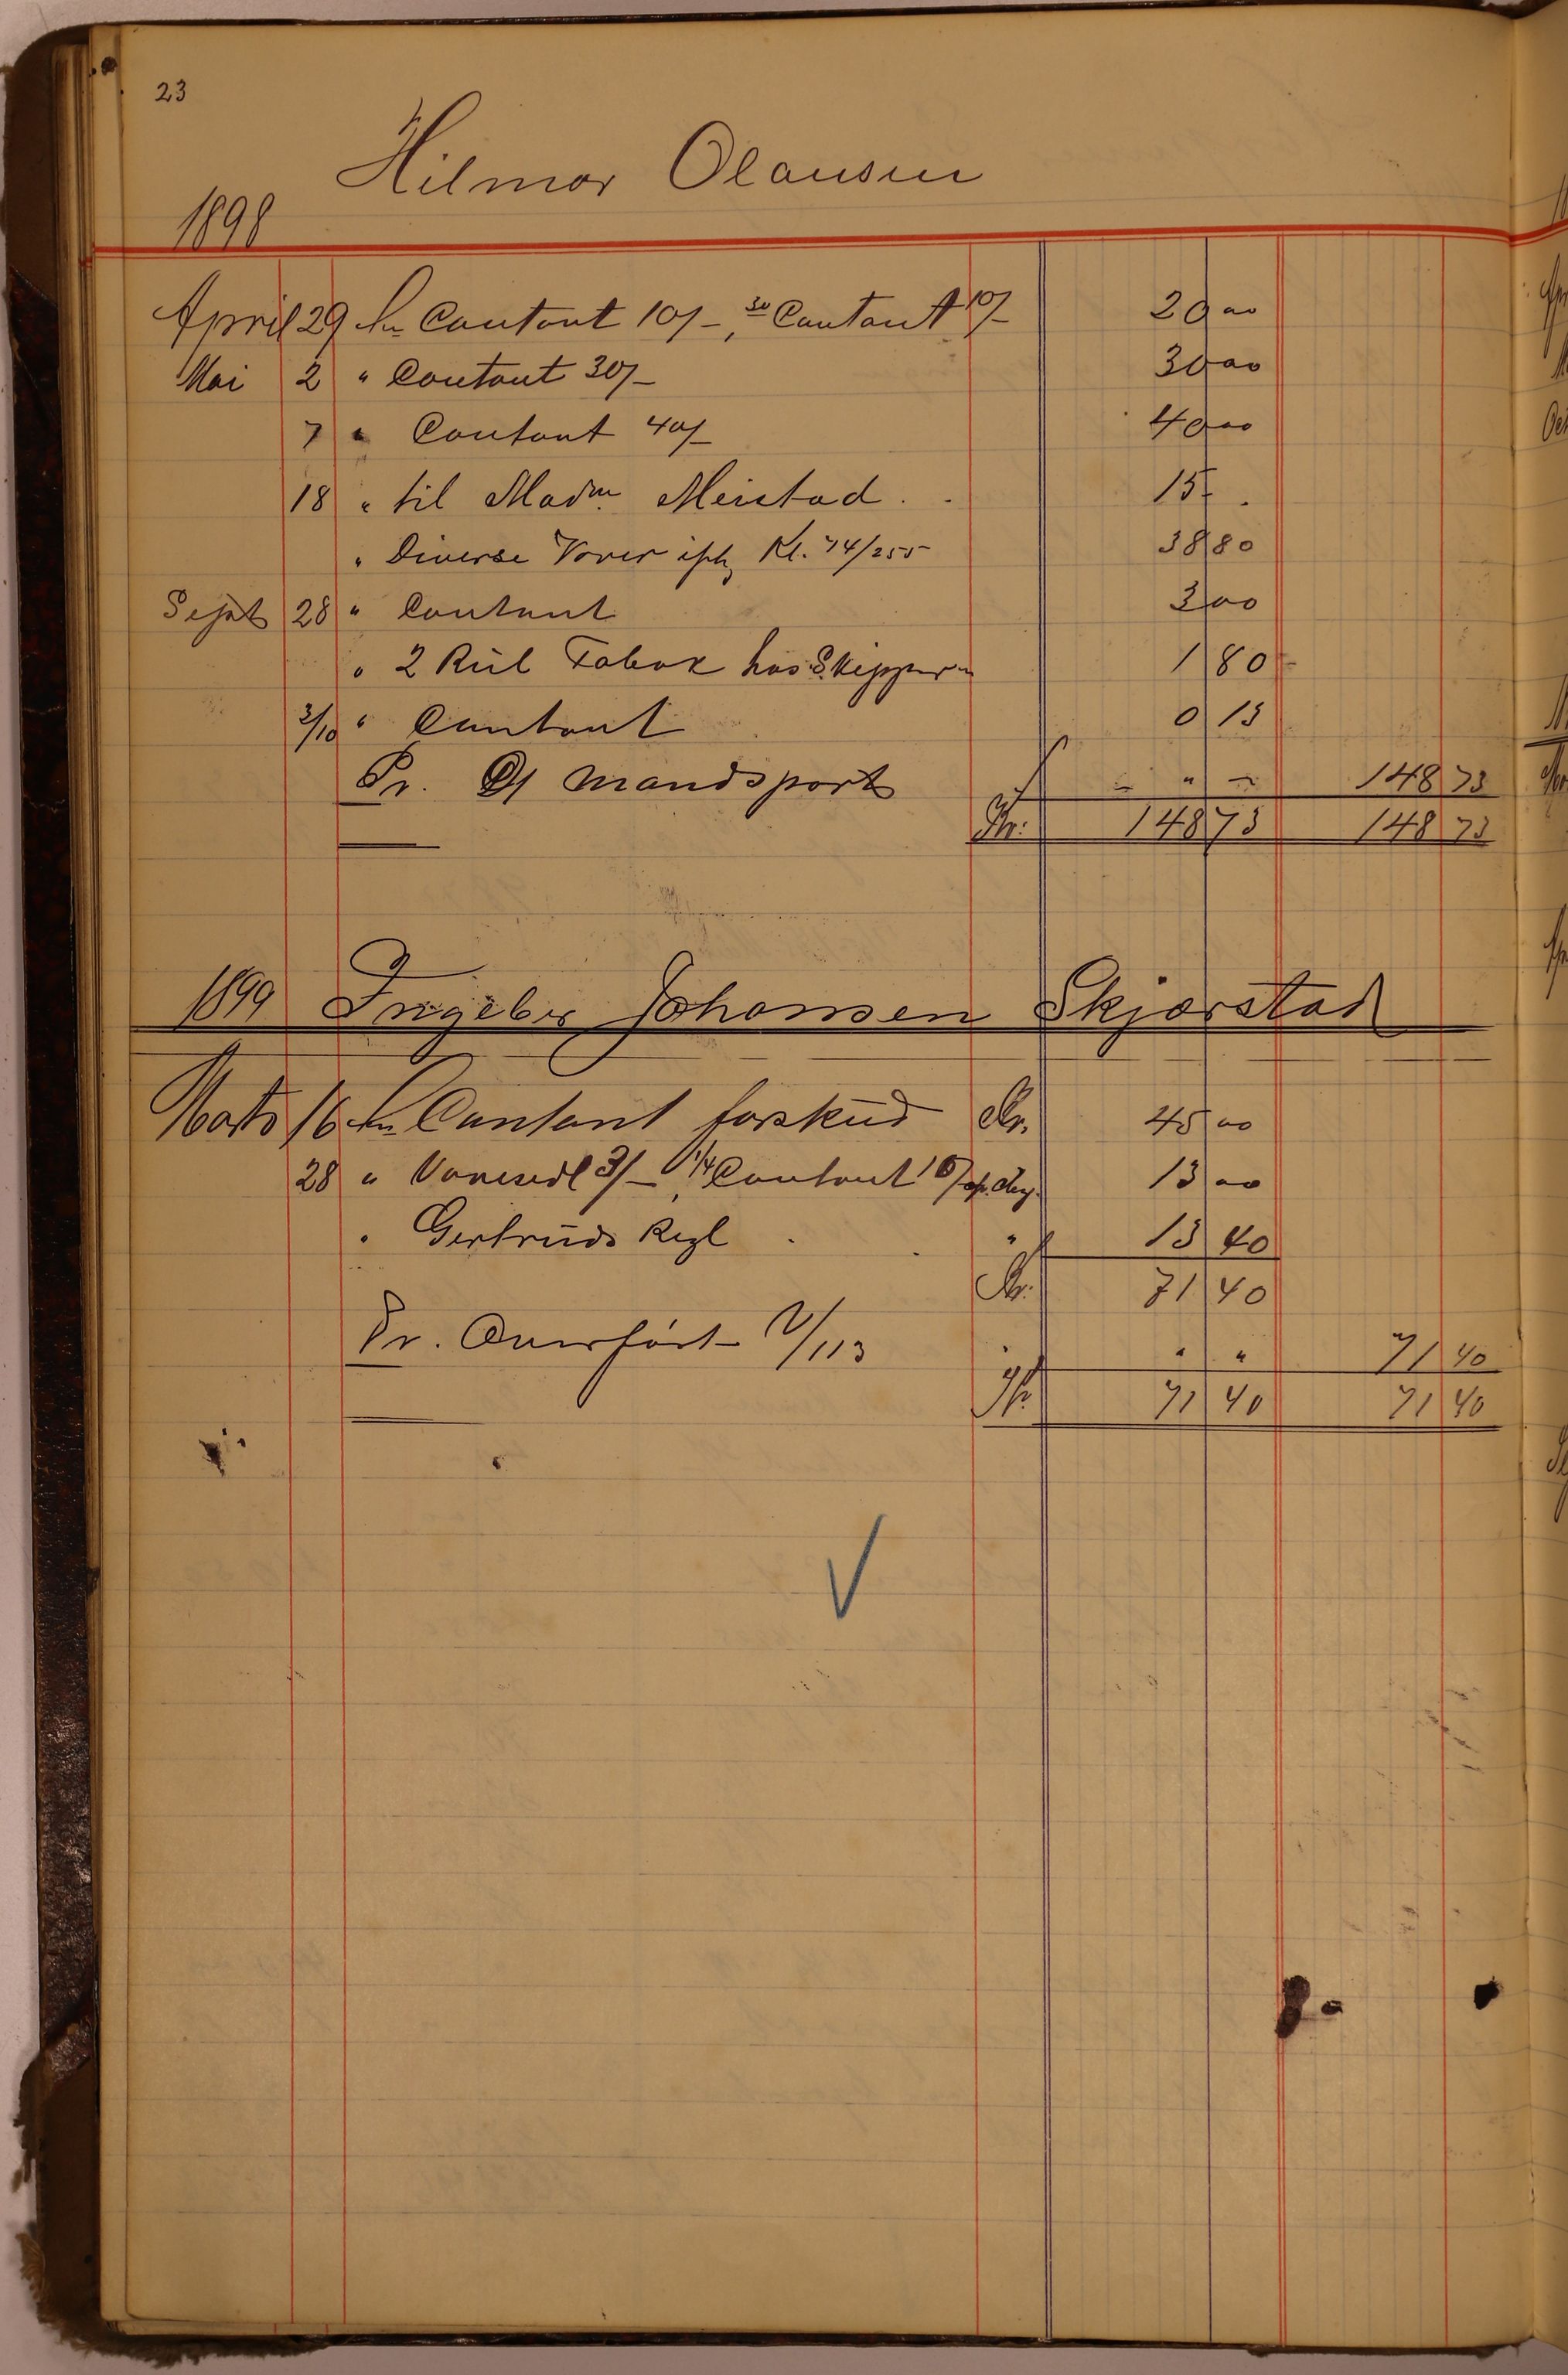 23
Hilmar Olausen
1898
April 29 An Contant 10/-, 30 Contant 10/- 20 00
Mai 2 " Contant 30/- 30 00
7 " Contant 40/- 40 00
18 " til Madm. Meistad . . 15 - .
" Diverse Varer ifh Kl. 74/255 38 80
Sept 28 " Contant 3 00
" 2 Rul Tobak hos Skipperen 1 80
3/10 " Contant 0 13
Pr. Mandspart " " 148 73
Kr. 148 73 148 73
1899 Ingebr Johansen Skjærstad
Marts 16 An Contant forskud Kr. 45 00
28 " Varesedl 3/-, 1/4 Contant 10/ 13 00
" Gertruds Regl " 13 40
Kr. 71 40
Pr. Overført 2/113 " " 71 40
Kr. 71 40 71 40